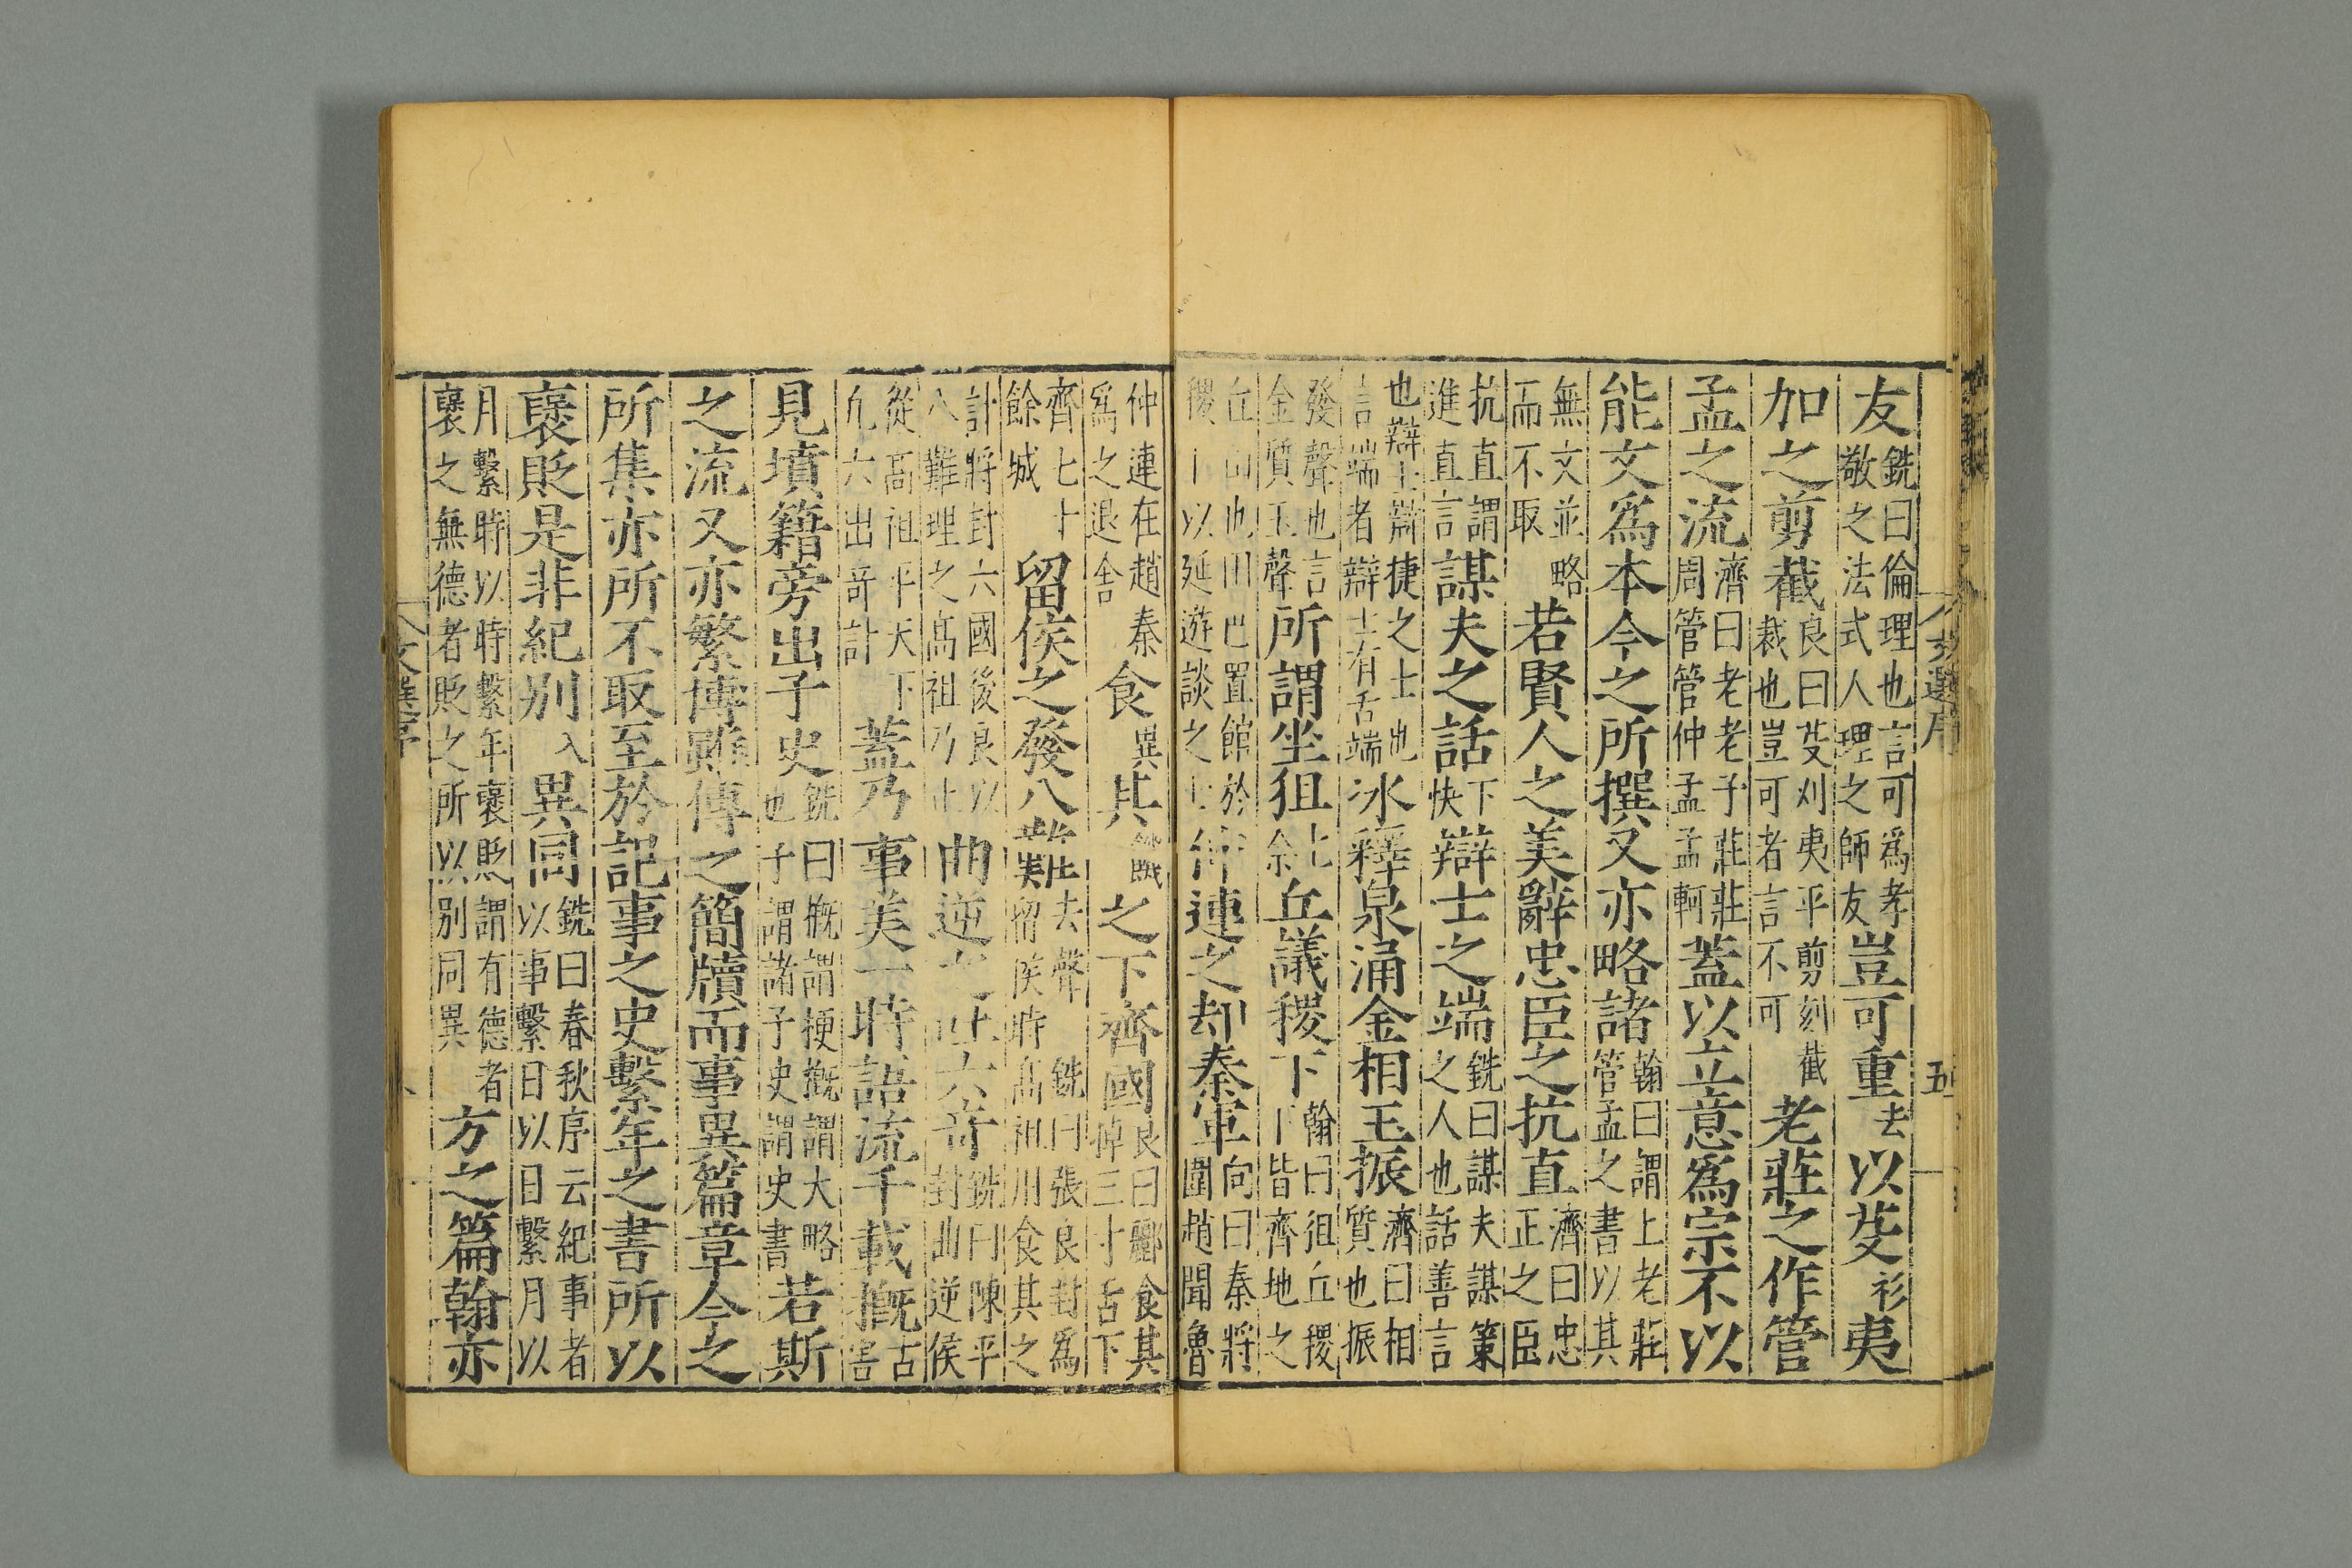 友銑曰倫理也言可爲孝敬之法式人理之師友豈可重去以芟衫夷
加之剪截良曰芟刈夷平剪刻截裁也豈可者言不可老莊之作管
孟之流濟曰老老子莊莊周管管仲孟孟軻蓋以立意爲宗不以
能文爲本今之所撰又亦略諸翰曰謂上老莊管孟之書以其
無文並略而不取若賢人之美辭忠臣之抗直濟曰忠正之臣
抗直謂進直言謀夫之話下快辯士之端銑曰謀夫謀策之人也話善言
也辯士辯捷之士也言端者辯士有舌端冰釋泉涌金相玉振濟曰相質也振
發聲也言金質玉聲所謂坐狙七余丘議稷下翰曰狙丘稷下皆齊地之
丘山也田巴置館於稷下以延遊談之士仲連之却秦軍向曰秦將圍趙聞魯
仲連在趙秦爲之退舍食異其之下齊國良曰酈食其掉三寸舌下
齊七十餘城留侯之發八難去聲銑曰張良封爲留侯時高祖用食其之
計將封六國後良以八難理之高祖乃止曲逆之吐六奇銑曰陳平封曲逆侯
從高祖平天下凡六出奇計蓋乃事美一時語流千載概古害
見墳籍旁出子史銑曰概謂梗概謂大略也子謂諸子史謂史書若斯
之流又亦繁博雖傳之簡牘而事異篇章今之
所集亦所不取至於記事之史繫年之書所以
襃貶是非紀別入異同銑曰春秋序云紀事者以事繫日以日繫月以
月繫時以時繫年襃貶謂有德者襃之無德者貶之所以別同異方之篇翰亦
文選序
五